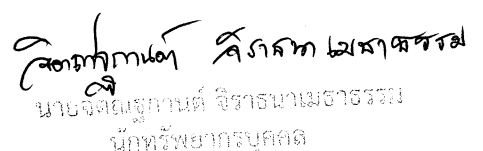 จิตณัฐกานต์ จิราธนาเมธาธรรม
นายจิตณัฐกานต์ จิราธนาเมธาธรรม
นักทรัพยากรบุคคล